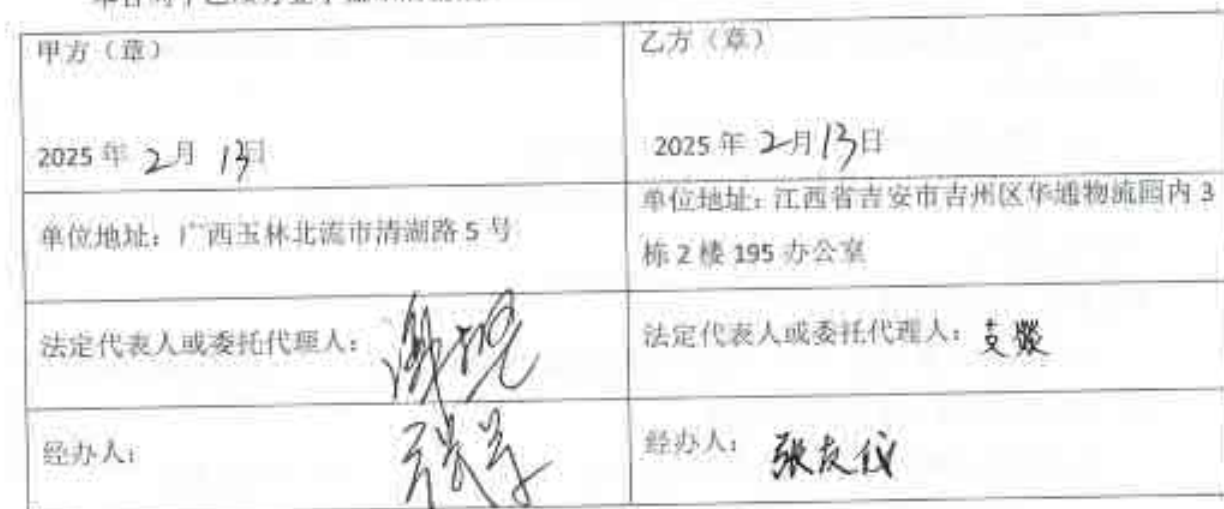 甲方（章）
乙方（章）
2025 年 2月 13日
2025 年 2月13日
单位地址：广西玉林北流市清湖路 5 号
单位地址：江西省吉安市吉州区华通物流园内 3
栋 2 楼 195 办公室
法定代表人或委托代理人：
法定代表人或委托代理人：
经办人：
经办人：张友仪